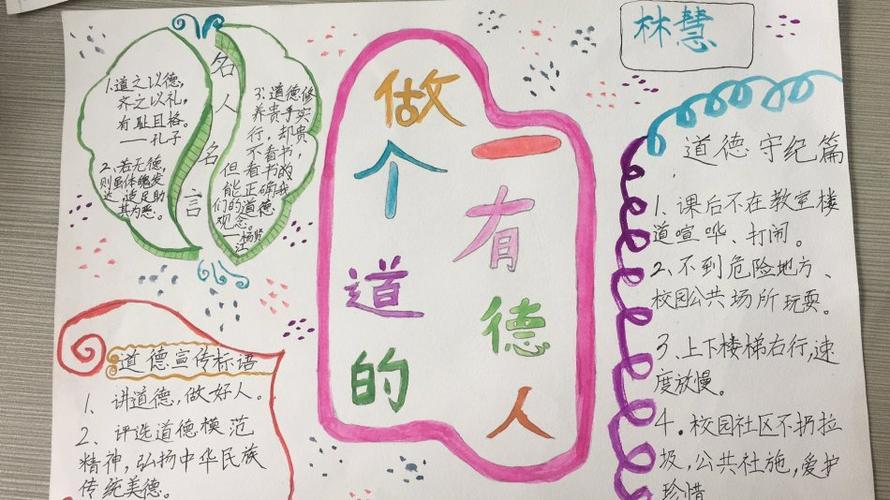 名人名言
1.道之以德,
齐之以礼,
有耻且格。
——孔子
2、若无德,
则虽体魄发
达,适足助
其为恶。
3:道德修
养贵乎实
行,却贵
不看书,
但看书的
能正确我
们的道德
观念。
—杨贤
江
做一
个有
道德
的人
林慧
道德守纪篇
1、课后不在教室楼
道喧哗、打闹。
2、不到危险地方、
校园公共场所玩耍。
3、上下楼梯右行,速
度放慢。
4.校园社区不扔垃
圾,公共社施,爱护
珍惜
道德宣传标语
1、讲道德,做好人。
2、评选道德模范
精神,弘扬中华民族
传统美德。